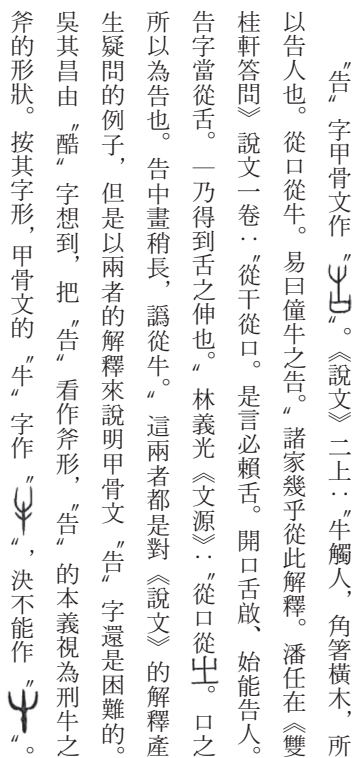 "告"字甲骨文作""。《說文》二上:"牛觸人,角箸橫木,所
以告人也。從口從牛。易曰僮牛之告。"諸家幾乎從此解釋。潘任在《雙
桂軒答問》說文一卷:"從干從口。是言必賴舌。開口舌啟、始能告人。
告字當從舌。一乃得到舌之伸也。"林義光《文源》:"從口從㞢。口之
所以為告也。告中畫稍長,譌從牛。"這兩者都是對《說文》的解釋產
生疑問的例子,但是以兩者的解釋來說明甲骨文"告"字還是困難的。
吳其昌由"酷"字想到,把"告"看作斧形,"告"的本義視為刑牛之
斧的形狀。按其字形,甲骨文的"牛"字作"",決不能作""。